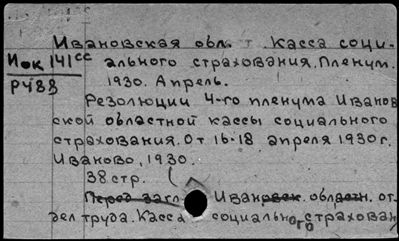 Ивановская обл. т. Касса соци-
Иок 141сс ального страхования. Пленум.
Р488 1930. Апрель.
Резолюции 4-го пленума Иванов
ской областной кассы социального
страхования. От 16-18 апреля 1930 г.
Иваново, 1930.
38 стр.
Перед загл. Иванвск. областн. от-
дел труда. Касса социального страхован